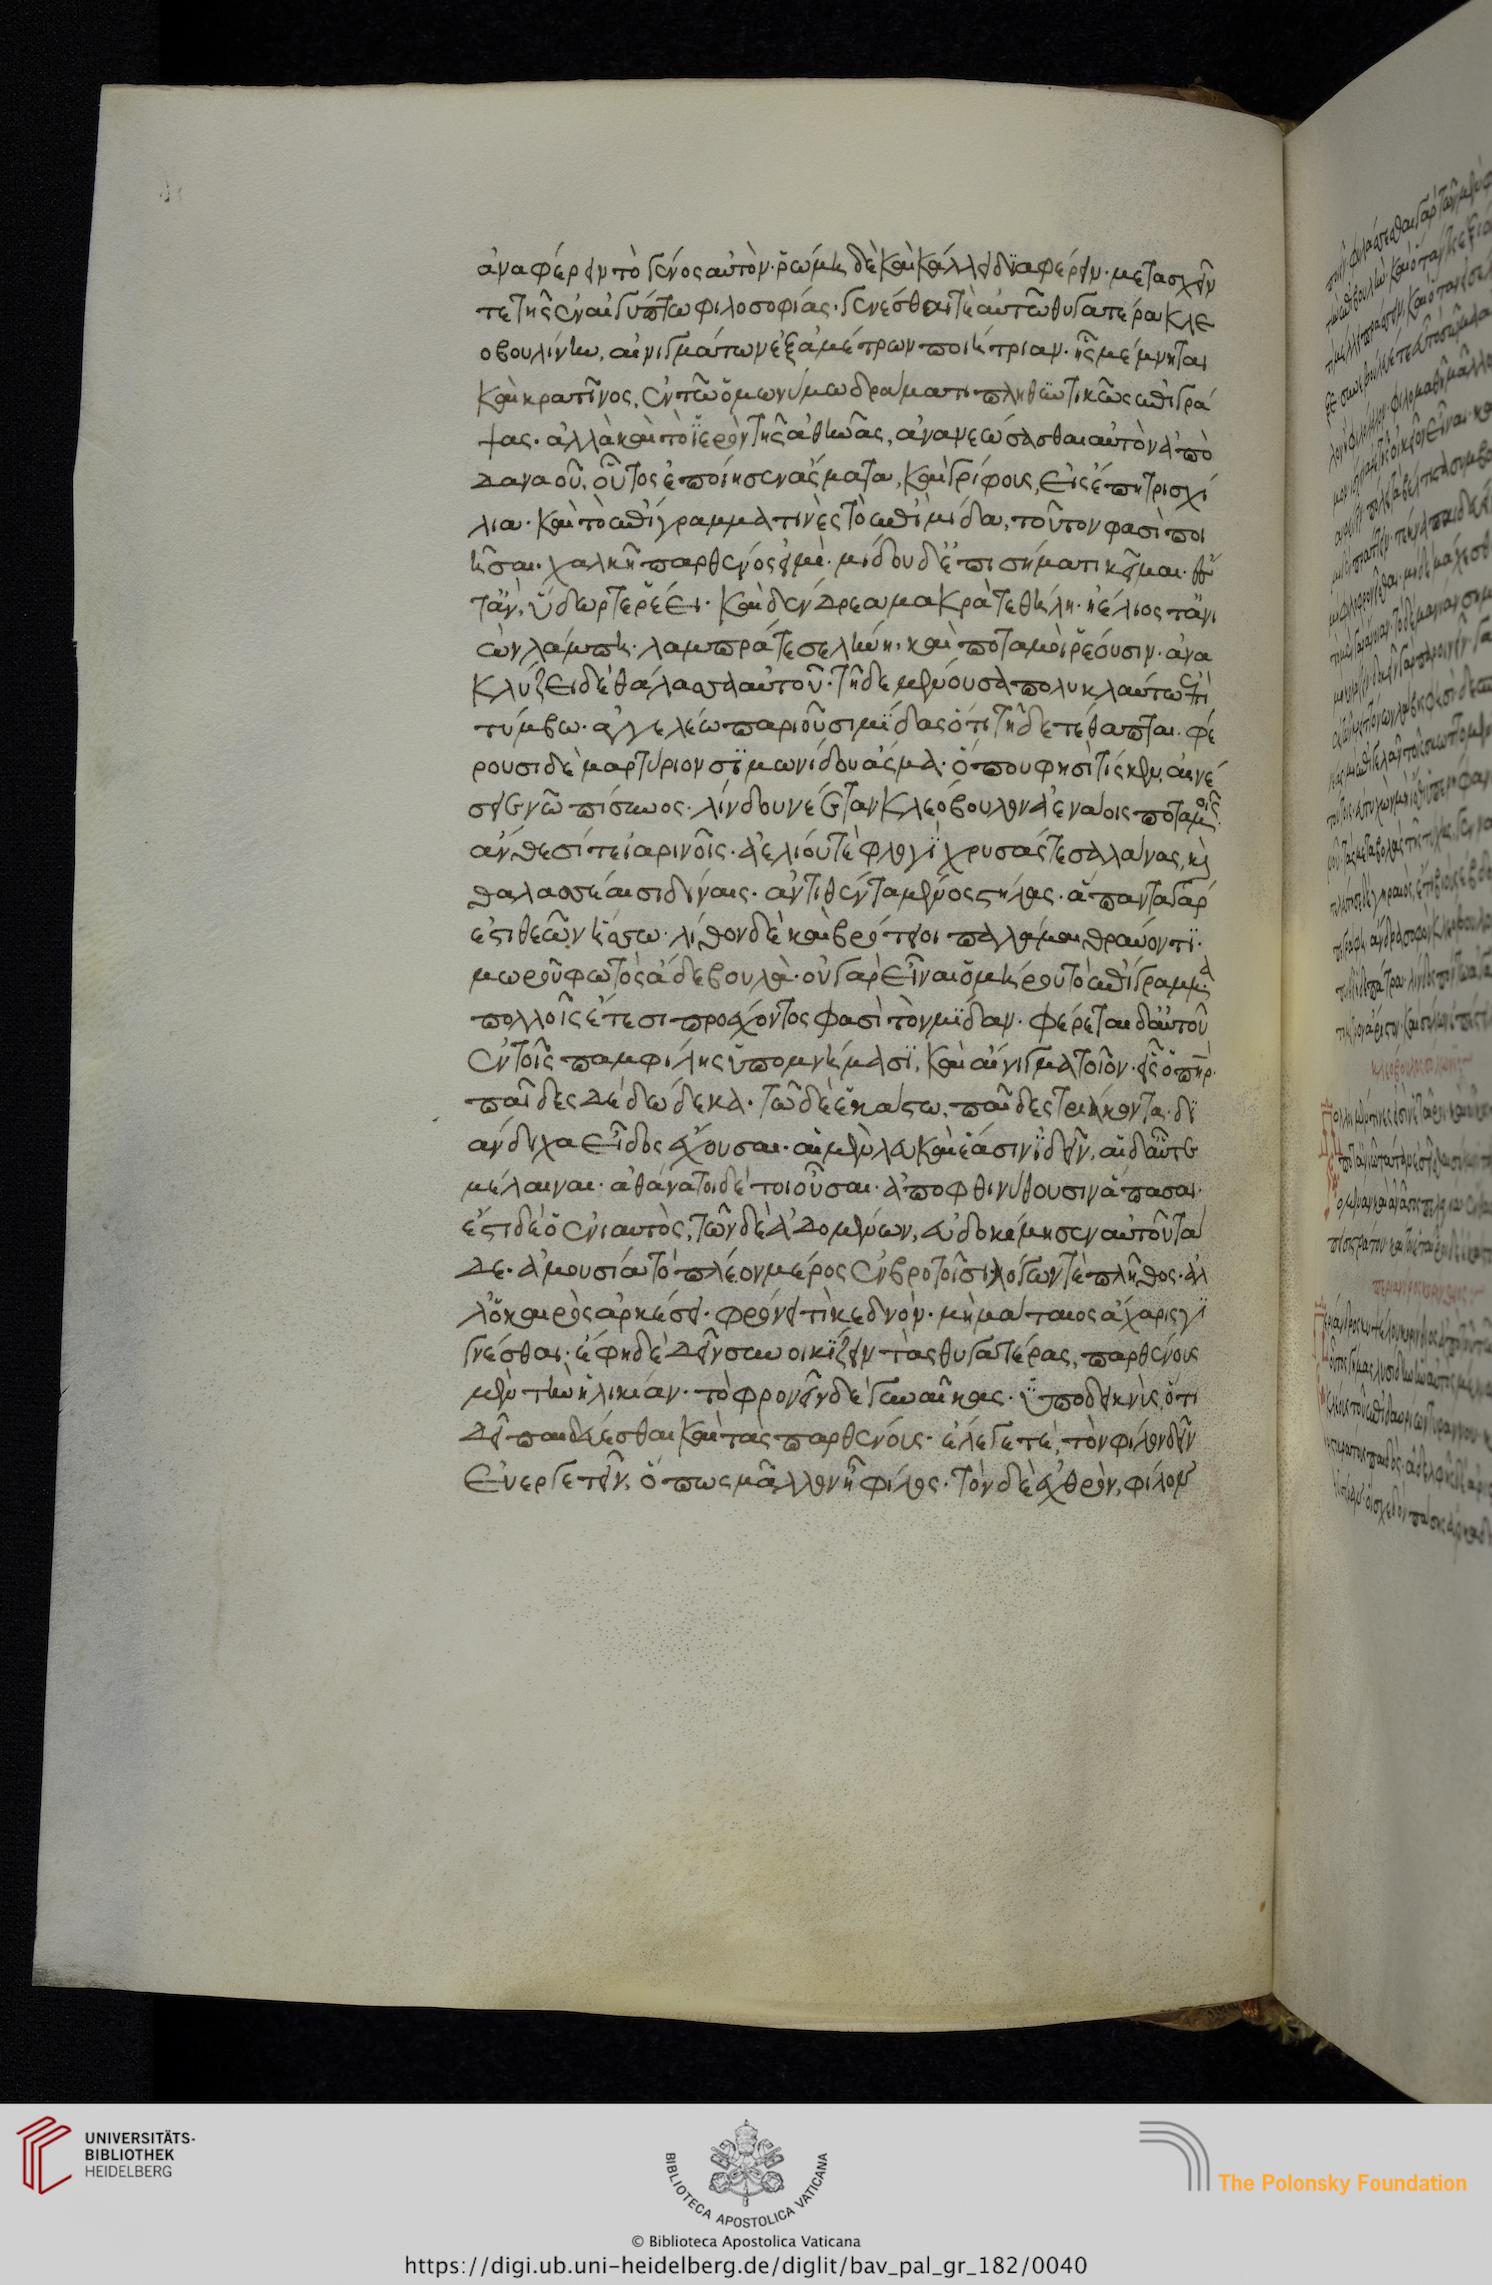 ἀναφέρειν τὸ γένος αὐτὸν· ῥώμη δὲ καὶ κάλλει διαφέρειν· μετασχεῖν
τε τῆς ἐν αἰγύπτω φιλοσοφίας· γενέσθαι τὲ αὐτῶ θυγατέρα κλε
οβουλίνην, αἰνιγμάτων ἑξαμέτρων ποιήτριαν· ἧς μέμνηται
καὶ κρατῖνος, ἐν τῶ ὁμωνύμω δράματι πληθυντικῶς ἐπιγρά
ψας· ἀλλὰ καὶ τὸ ἱερὸν τῆς ἀθηνᾶς, ἀνανεώσασθαι αὐτὸν ἀπὸ
δαναοῦ, οὗτος ἐποίησεν ἄσματα, καὶ γρίφους, εἰς ἔπη τρισχί
λια· καὶ τὸ ἐπίγραμμα τινὲς τὸ ἐπὶ μίδα, τοῦτον φασὶ ποι
ῆσαι· χαλκῆ παρθένος εἰμὶ· μίδου δ' ἐπι σήματι κεῖμαι· ἔστ'
τἂν, ὕδωρ τε ῥέει· καὶ δένδρεα μακρὰ τεθήλη· ἠέλιος τ' ἀνι
ὼν λάμπη· λαμπρά τε σελήνη· καὶ ποταμοὶ ῥέουσιν· ἀνα
κλύζει δὲ θάλασσα αὐτοῦ· τῆδε μένουσα πολυκλαύτω ἐπὶ
τύμβω· ἀγγελέω παριοῦσι μίδας ὅτι τῆδε τέθαπται· φέ
ρουσι δὲ μαρτύριον σιμωνίδου ἄσμα· ὅπου φησὶ τίς κεν, αἰνέ
σειε νῶ πίσυνος· λίνδου νέσταν κλεόβουλον ἀενάοις ποταμοῖς
ἄνθεσί τ' εἰαρινοῖς· ἀελίου τὲ φλογὶ χρυσάς τε σαλάνας, καὶ
θαλασσίαισι δίναις· ἀντιθέντα μένος στήλας· ἅπαντα γάρ
ἐστι θεῶν ἥσσω· λίθον δὲ καὶ βρότειοι παλάμαι θραύοντι·
μωροῦ φωτὸς ἅδε βουλὰ· οὐ γὰρ εἶναι ὁμήρου τὸ ἐπίγραμμα
πολλοῖς ἔτεσι προέχοντος φασὶ τὸν μίδαν· φέρεται δ' αὐτοῦ
ἐν τοῖς παμφίλης ὑπομνήμασι, καὶ αἴνιγμα τοῖον· εἷς ὁ πατὴρ·
παῖδες δέ δώδεκα· τῶ δὲ ἑκάστω, παῖδες τριήκοντα· δι
άνδιχα εἶδος ἔχουσαι· αἱ μὲν λευκαὶ ἔασιν ἰδεῖν, αἱ δ' αὖτε
μέλαιναι· ἀθάνατοι δέ τοι οὖσαι· ἀποφθινύθουσιν ἅπασαι·
ἔστι δὲ ὁ ἐνιαυτὸς, τῶν δὲ ἀδομένων, εὐδοκίμησεν αὐτοῦ τά
δε· ἀμουσία τὸ πλέον μέρος ἐν βροτοῖσι· λόγων τὲ πλῆθος· ἀλ
λ' ὁ καιρὸς ἀρκέσει· φρόνει τὶ κεδνόν· μὴ μάταιος ἄχαρις γι
γνέσθαι· ἔφη δὲ δεῖν συνοικίζειν τὰς θυγατέρας, παρθένους
μὲν τὴν ἡλικίαν· τὸ φρονεῖν δὲ γυναῖκας· ὑποδεικνὺς, ὅτι
δεῖ παιδεύεσθαι καὶ τὰς παρθένους· ἔλεγε τὲ, τὸν φίλον δεῖν
εὐεργετεῖν, ὅπως μᾶλλον ἦ φίλος· τὸν δὲ ἐχθρὸν, φίλον
UNIVERSITÄTS-
BIBLIOTHEK
HEIDELBERG
BIBLIOTECA APOSTOLICA VATICANA
The Polonsky Foundation
© Biblioteca Apostolica Vaticana
https://digi.ub.uni-heidelberg.de/diglit/bav_pal_gr_182/0040